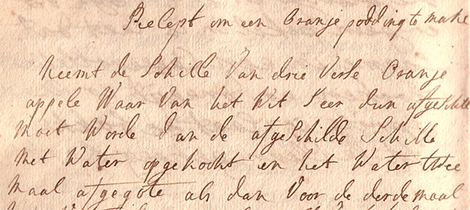 Recept om een Oranje podding te make
Neemt de Schille Van drie Verse Oranje
appele Waar Van het Wit Seer dun afgeschilt
moet Worde dan de afgeschilde Schille
met Water opgekockt en het Water twe
maal afgegote als dan Voor de derdemaal